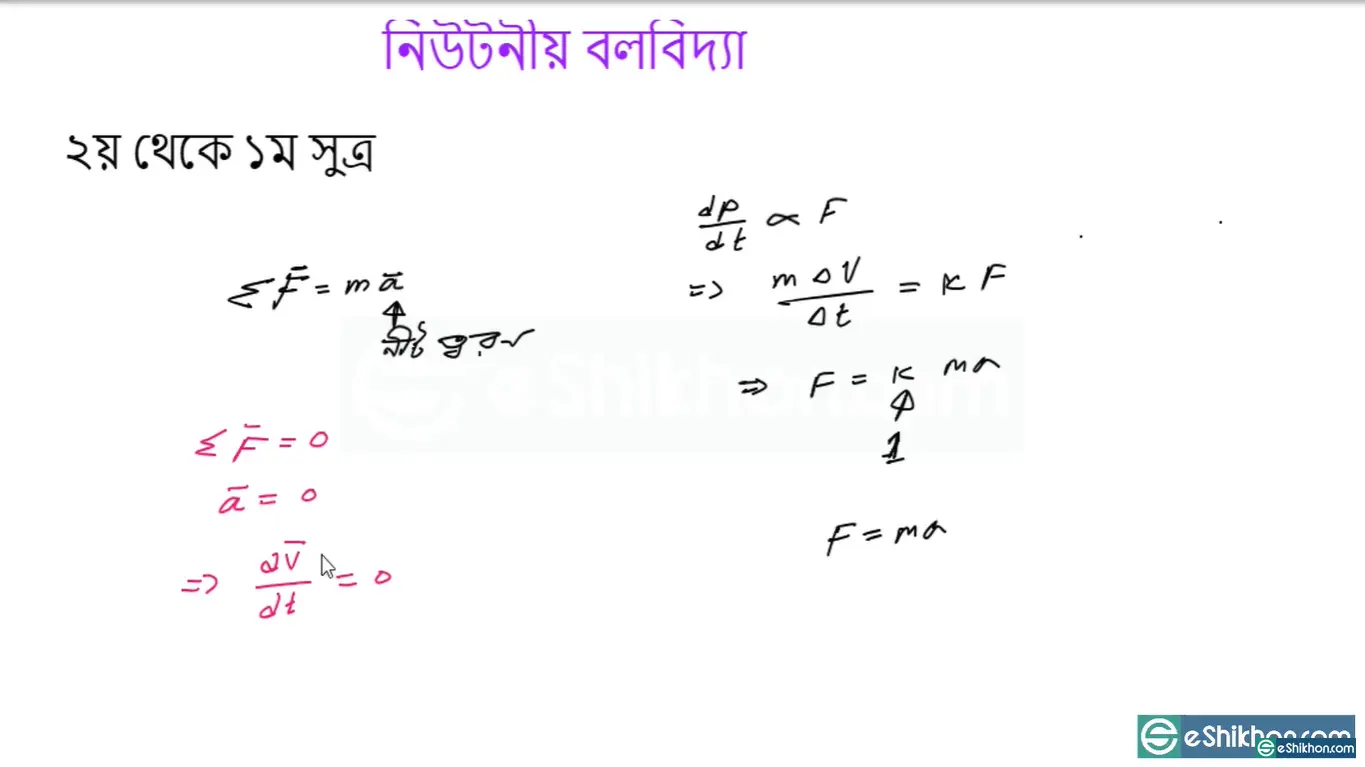 নিউটনীয় বলবিদ্যা
২য় থেকে ১ম সুত্র
Σ F̄ = m ā
নীট ত্বরণ
Σ F̄ = 0
ā = 0
=> dv̄/dt = 0
dp/dt ∝ F
=> m Δv/Δt = K F
=> F = K ma
1
F = ma
eShikhon.com
eShikhon.com
eShikhon.com